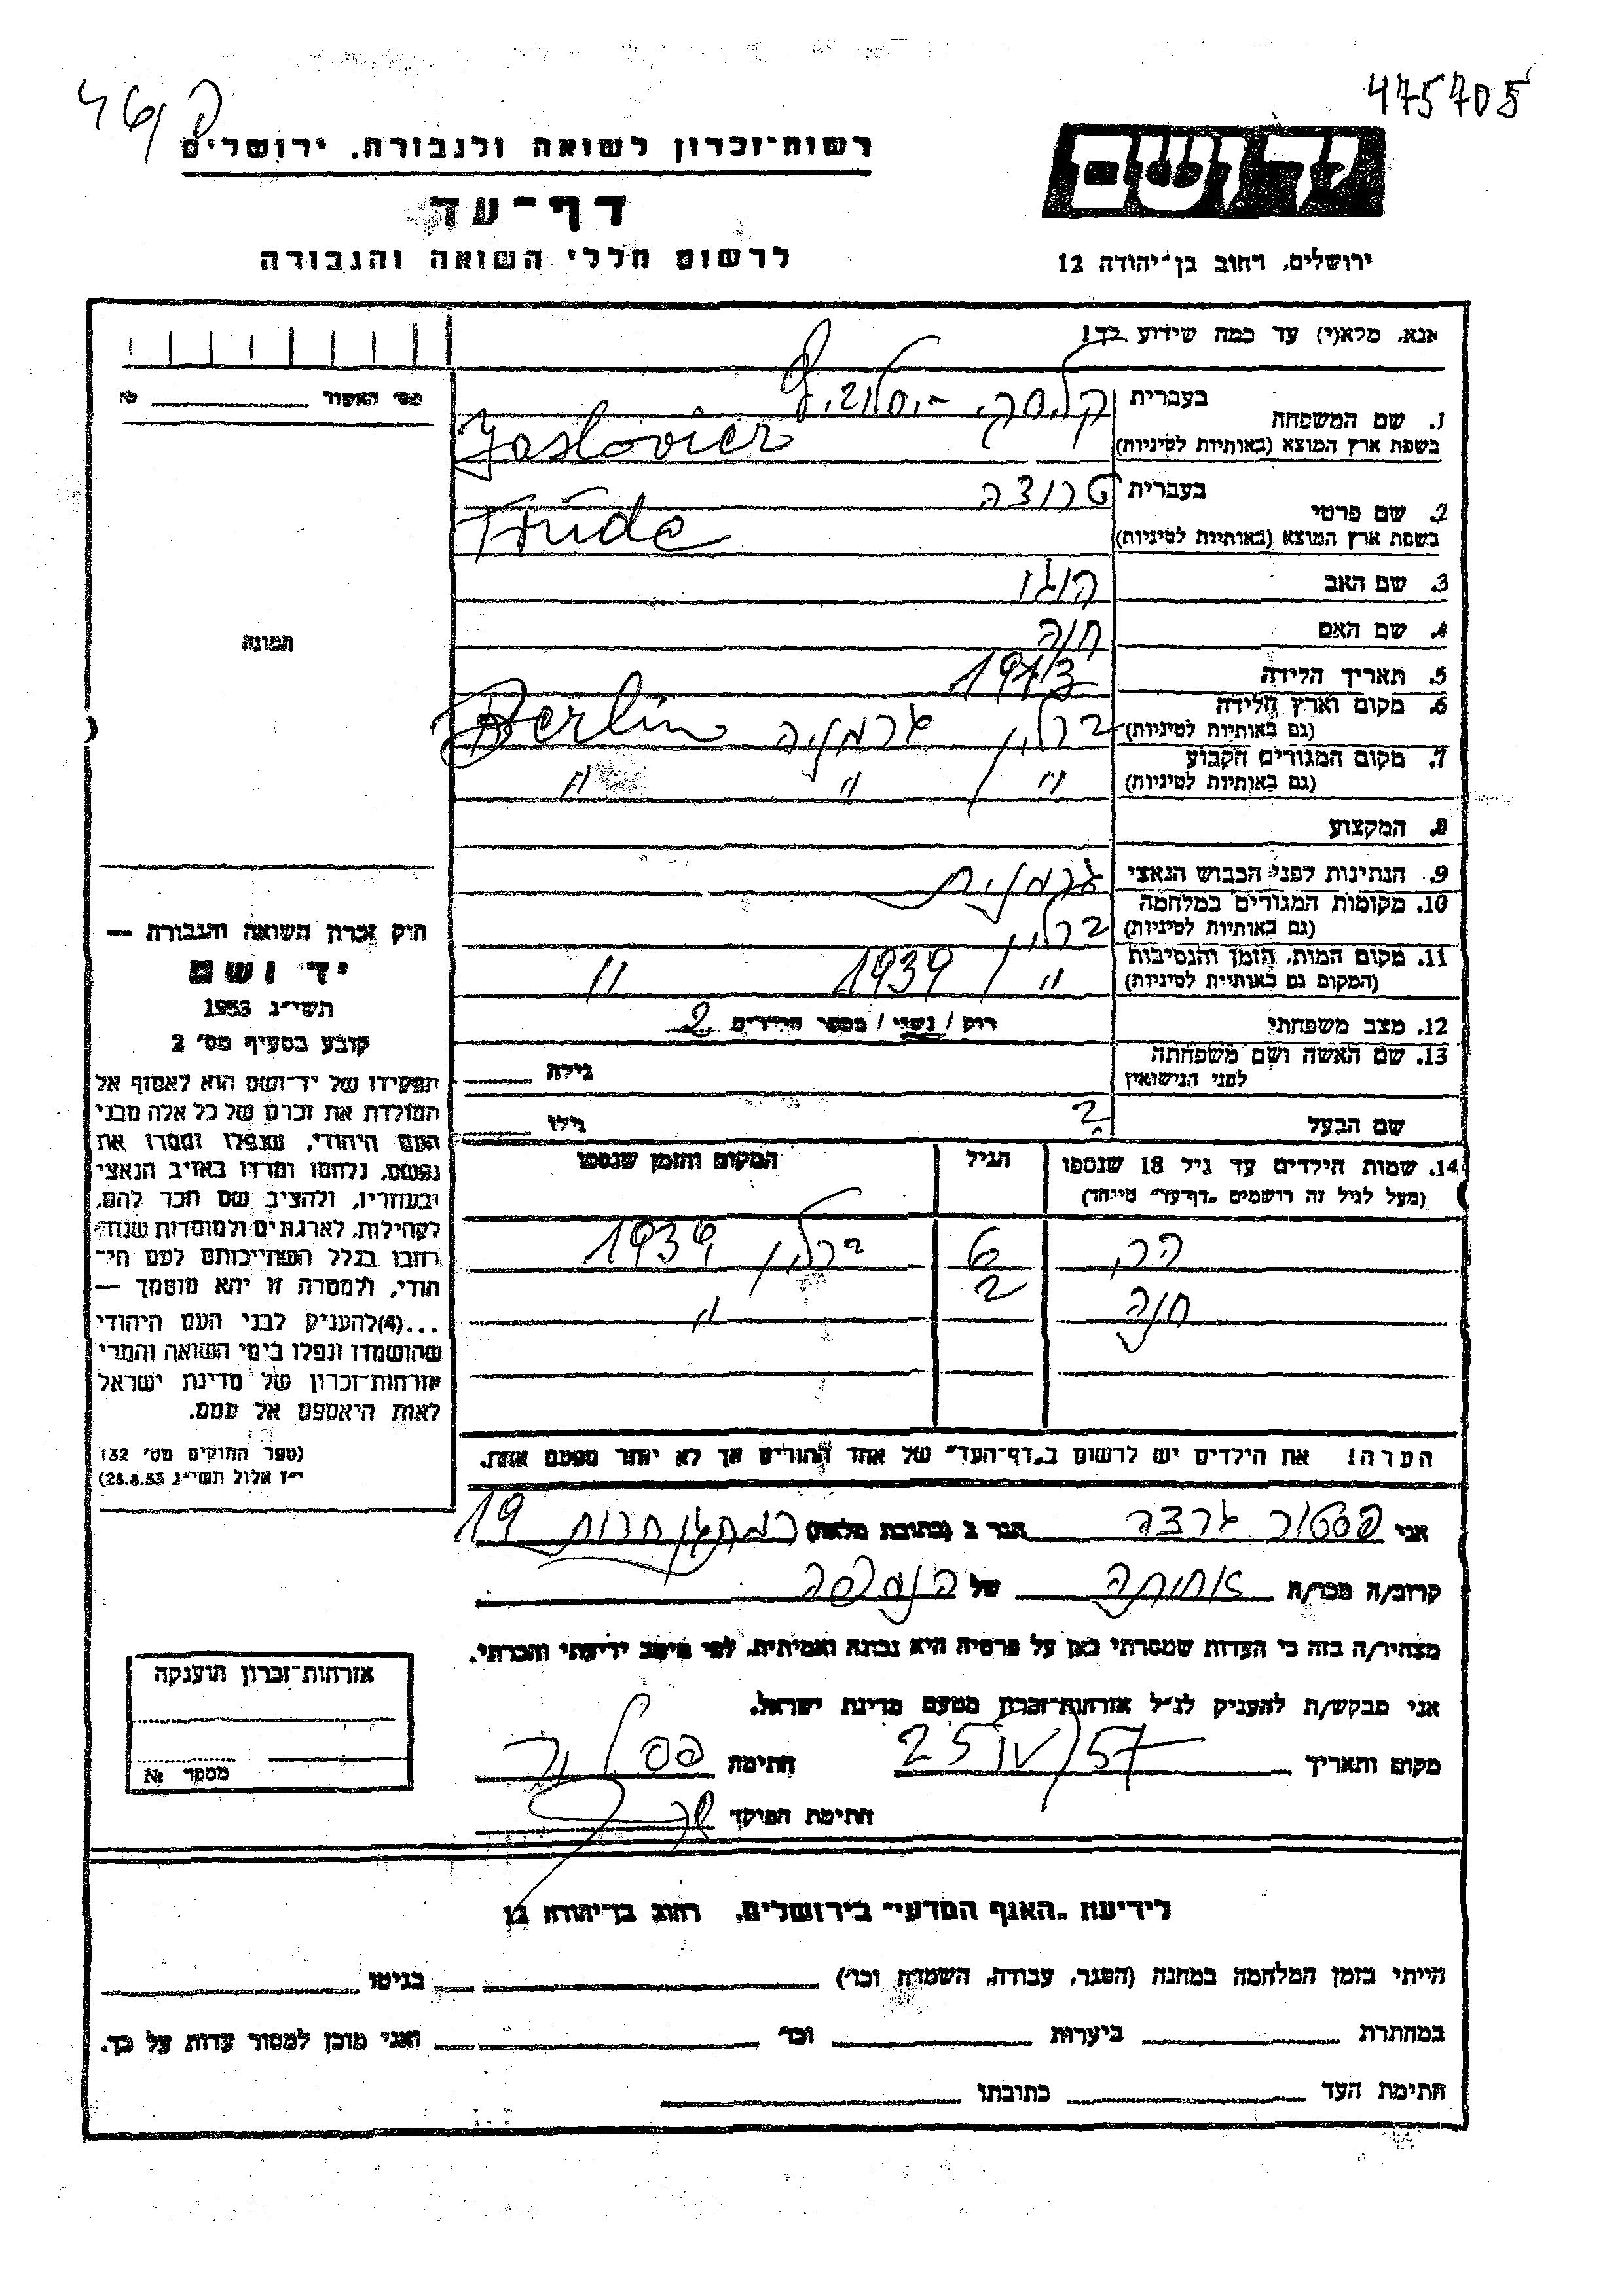 475705
רשות־זכרון לשואה ולגבורה, ירושלים
יד ושם
דף־עד
לרשום חללי השואה והגבורה
ירושלים, רחוב בן־יהודה 12
אנא, מלא(י) עד כמה שידוע לך!
מס׳ האשור № 
1. שם המשפחה
בעברית
בשפת ארץ המוצא (באותיות לטיניות) Jaslovicz
2. שם פרטי
בעברית טרודה
בשפת ארץ המוצא (באותיות לטיניות) Trude
3. שם האב הוגו
4. שם האם חוה
5. תאריך הלידה 1913
6. מקום וארץ הלידה
(גם באותיות לטיניות) ברלין גרמניה Berlin
7. מקום המגורים הקבוע
(גם באותיות לטיניות) " " "
8. המקצוע
9. הנתינות לפני הכבוש הנאצי גרמנית
10. מקומות המגורים במלחמה
(גם באותיות לטיניות) ברלין
11. מקום המות, הזמן והנסיבות
(המקום גם באותיות לטיניות) " 1939 "
12. מצב משפחתי רווק / נשוי / מספר הילדים 2
13. שם האשה ושם משפחתה
לפני הנישואין גילה
שם הבעל ? גילו
14. שמות הילדים עד גיל 18 שנספו
(מעל לגיל זה רושמים „דף־עד״ מיוחד)
הגיל
המקום והזמן שנספו
6 ברלין 1939
חנה 2 "
הערה! את הילדים יש לרשום ב„דף־העד״ של אחד ההורים אך לא יותר מפעם אחת.
תמונה
חוק זכרון השואה והגבורה —
יד ושם
תשי״ג 1953
קובע בסעיף מס׳ 2
תפקידו של יד־ושם הוא לאסוף אל
המולדת את זכרם של כל אלה מבני
העם היהודי, שנפלו ומסרו את
נפשם, נלחמו ומרדו באויב הנאצי
ובעוזריו, ולהציב שם וזכר להם,
לקהילות, לארגונים ולמוסדות שנח־
רבו בגלל השתייכותם לעם הי־
הודי, ולמטרה זו יהא מוסמך —
...(4)להעניק לבני העם היהודי
שהושמדו ונפלו בימי השואה והמרי
אזרחות־זכרון של מדינת ישראל
לאות היאספם אל עמם.
(ספר החוקים מס׳ 132
י״ז אלול תשי״ג 28.8.53)
אני פסטור גרדה הגר ב (כתובת מלאה) רמתגן חרות 19
קרוב/ה מכר/ה אחותה של הנספה
מצהיר/ה בזה כי העדות שמסרתי כאן על פרטיה היא נכונה ואמיתית, לפי מיטב ידיעתי והכרתי.
אני מבקש/ת להעניק לנ״ל אזרחות־זכרון מטעם מדינת ישראל.
מקום ותאריך 25/IV/57 חתימה
חתימת הפוקד
אזרחות־זכרון הוענקה
מספר №
לידיעת „האגף המדעי״ בירושלים, רחוב בן־יהודה 12
הייתי בזמן המלחמה במחנה (הסגר, עבודה, השמדה וכו׳) בגיטו
במחתרת ביערות וכו׳ ואני מוכן למסור עדות על כך.
חתימת העד כתובתו